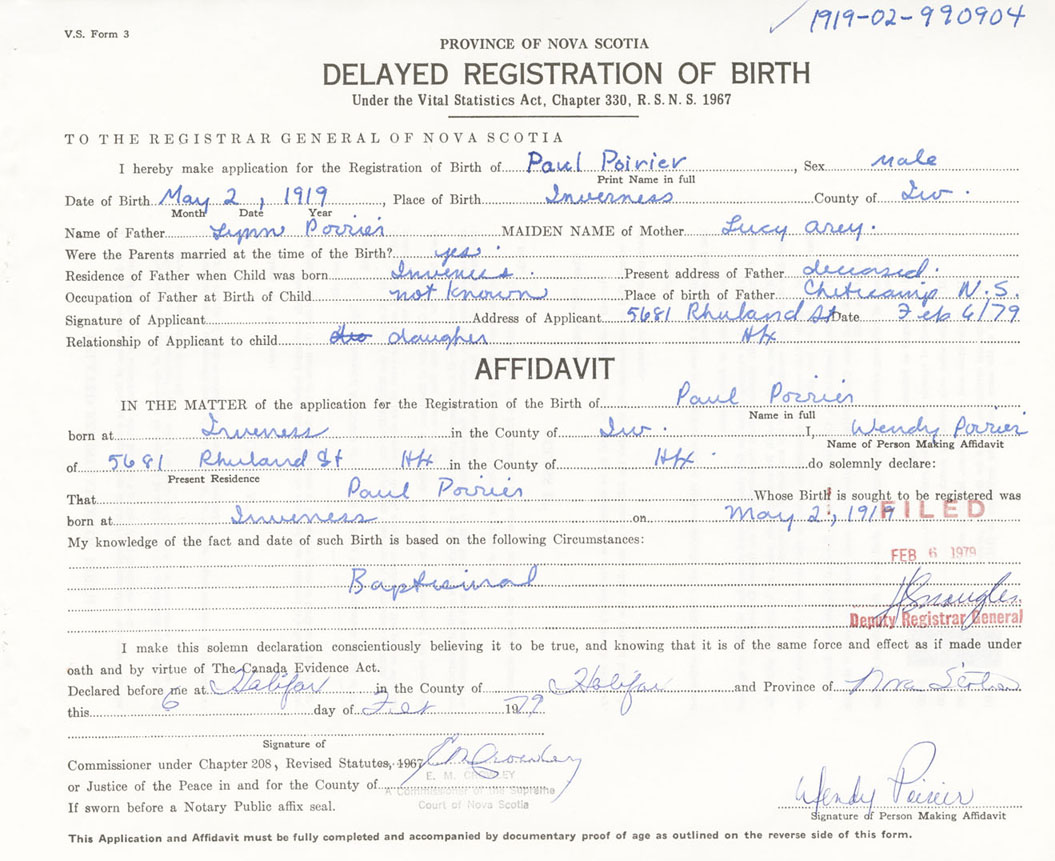 V.S. Form 3
1919-02-990904
PROVINCE OF NOVA SCOTIA
DELAYED REGISTRATION OF BIRTH
Under the Vital Statistics Act, Chapter 330, R.S.N.S. 1967
TO THE REGISTRAR GENERAL OF NOVA SCOTIA
I hereby make application for the Registration of Birth of Paul Poirier, Sex male
Print Name in full
Date of Birth May 2, 1919, Place of Birth Inverness County of Inv.
Month Date Year
Name of Father Lynn Poirier MAIDEN NAME of Mother Lucy Arey.
Were the Parents married at the time of the Birth? yes.
Residence of Father when Child was born Inverness. Present address of Father deceased.
Occupation of Father at Birth of Child not known Place of birth of Father Cheticamp N.S.
Signature of Applicant Address of Applicant 5681 Rhuland St Date Feb 6/79
Relationship of Applicant to child daugher Hfx
AFFIDAVIT
IN THE MATTER of the application for the Registration of the Birth of Paul Poirier
Name in full
born at Inverness in the County of Inv. I, Wendy Poirier
Name of Person Making Affidavit
of 5681 Rhuland St Hfx in the County of Hfx. do solemnly declare:
Present Residence
That Paul Poirier Whose Birth is sought to be registered was
born at Inverness on May 2, 1919
FILED
My knowledge of the fact and date of such Birth is based on the following Circumstances:
FEB 6 1979
Baptismal
Deputy Registrar General
I make this solemn declaration conscientiously believing it to be true, and knowing that it is of the same force and effect as if made under
oath and by virtue of The Canada Evidence Act.
Declared before me at Halifax in the County of Halifax and Province of Nova Scotia
this 6 day of Feb 1979
Signature of
Commissioner under Chapter 208, Revised Statutes, 1967
E. M. CROWLEY
or Justice of the Peace in and for the County of
A Commissioner of the Supreme
Court of Nova Scotia
If sworn before a Notary Public affix seal.
Wendy Poirier
Signature of Person Making Affidavit
This Application and Affidavit must be fully completed and accompanied by documentary proof of age as outlined on the reverse side of this form.